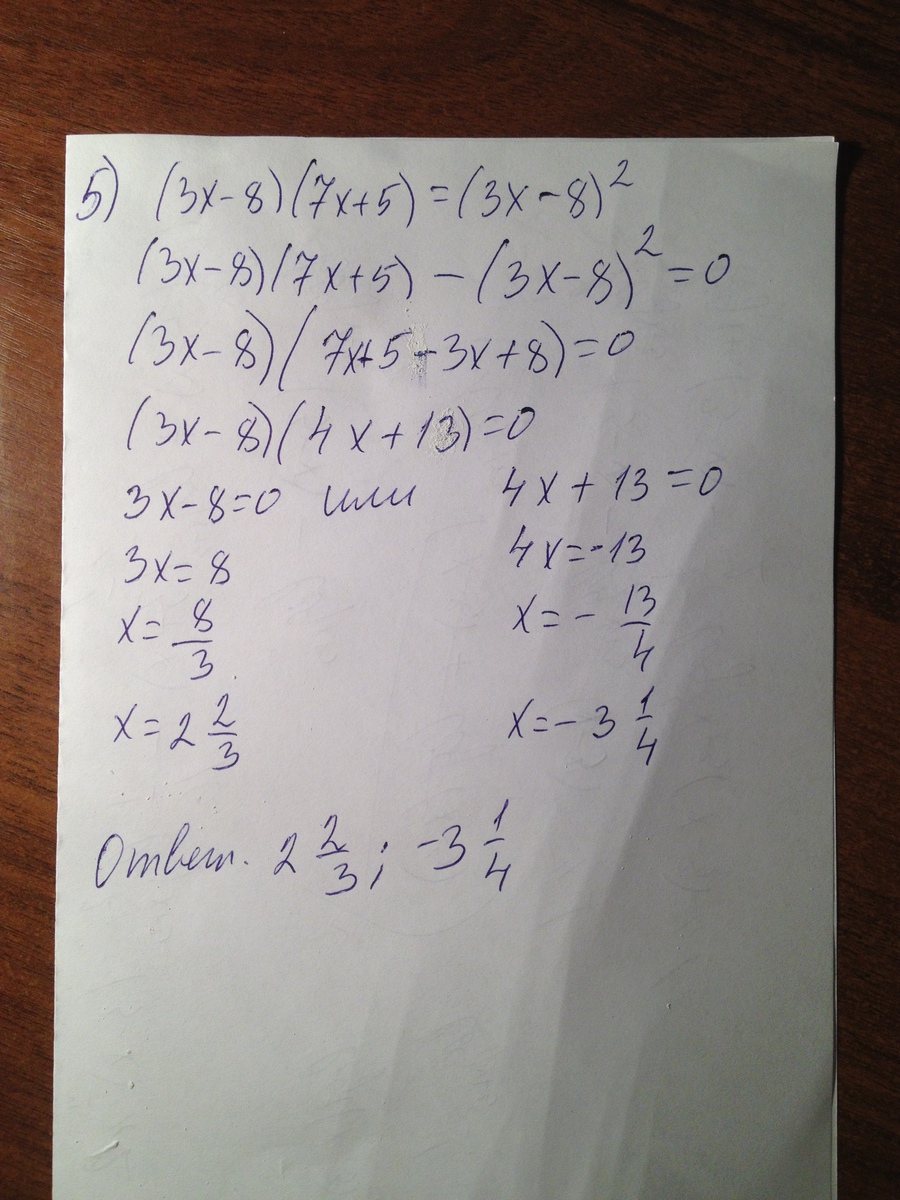 5) (3x-8)(7x+5)=(3x-8)²
(3x-8)(7x+5)-(3x-8)²=0
(3x-8)(7x+5-3x+8)=0
(3x-8)(4x+13)=0
3x-8=0 или 4x+13=0
3x=8 4x=-13
x=8/3 x=-13/4
x=2 2/3 x=-3 1/4
Ответ. 2 2/3; -3 1/4